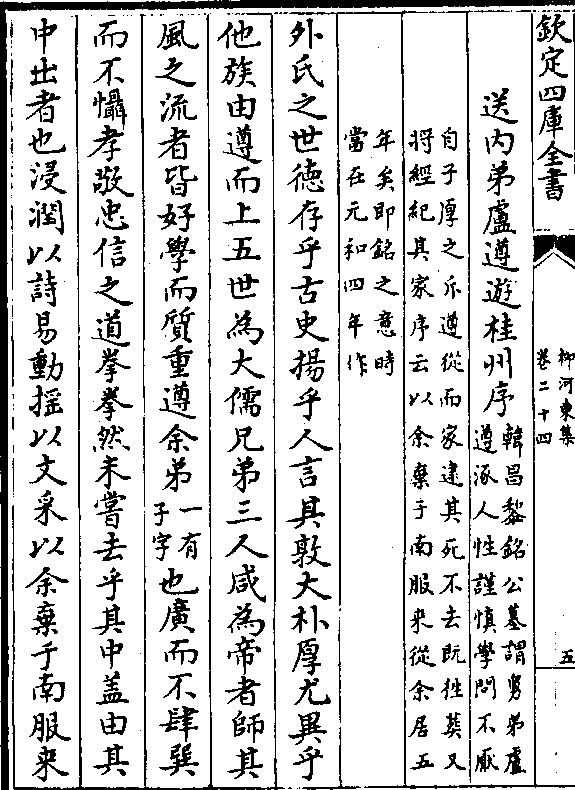 欽定四庫全書
柳河東集
卷二十四
五
送內弟盧遵遊桂州序
韓昌黎銘公墓謂舅弟盧
遵涿人性謹慎學問不厭
自子厚之斥遵從而家逮其死不去既往葬又
將經紀其家序云以余棄于南服來從余居五
年矣即銘之意時
當在元和四年作
外氏之世德存乎古史揚乎人言其敦大朴厚尤異乎
他族由遵而上五世為大儒兄弟三人咸為帝者師其
風之流者皆好學而質重遵余弟一有子字也廣而不肆巽
而不懾孝敬忠信之道拳拳然未嘗去乎其中蓋由其
中出者也浸潤以詩易動搖以文采以余棄于南服來